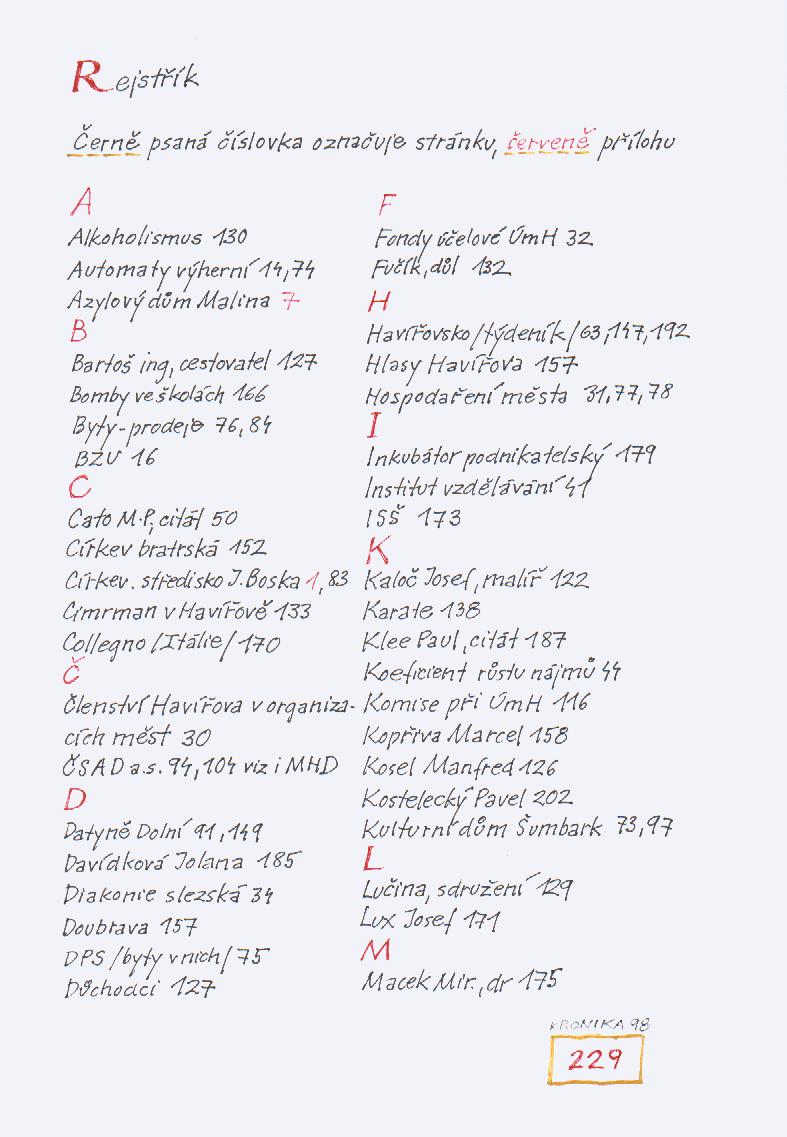 Rejstřík
Černě psaná číslovka označuje stránku, červeně přílohu
A
Alkoholismus 130
Automaty výherní 14,74
Azylový dům Malina 7
B
Bartoš ing, cestovatel 127
Bomby ve školách 166
Byty-prodeje 76,84
BZU 16
C
Cato M.P, citát 50
Církev bratrská 152
Církev. středisko J.Boska 1,83
Cimrman v Havířově 133
Collegno /Itálie/ 170
Č
Členství Havířova v organiza-
cích měst 30
ČSAD a.s. 94,104 viz i MHD
D
Datyně Dolní 91,149
Davídková Jolana 185
Diakonie slezská 34
Doubrava 157
DPS /byty v nich/ 75
Důchodci 127
F
Fondy účelové ÚmH 32
Fučík, důl 132
H
Havířovsko /týdeník/ 63,147,192
Hlasy Havířova 157
Hospodaření města 31,77,78
I
Inkubátor podnikatelský 179
Institut vzdělávání 41
ISŠ 173
K
Kaloč Josef, malíř 122
Karate 138
Klee Paul, citát 187
Koeficient růstu nájmů 44
Komise při ÚmH 116
Kopřiva Marcel 158
Kosel Manfred 126
Kostelecký Pavel 202
Kulturní dům Šumbark 73,97
L
Lučina, sdružení 129
Lux Josef 171
M
Macek Mir., dr 175
KRONIKA 98
229